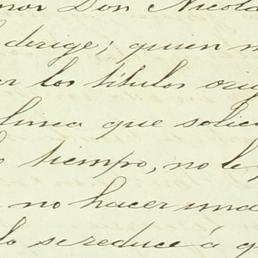 nor Don Nicola
dirige; quien n
ar los títulos orig
lunia que solic
tiempo, no le
no hacer una
lo se reduce á q